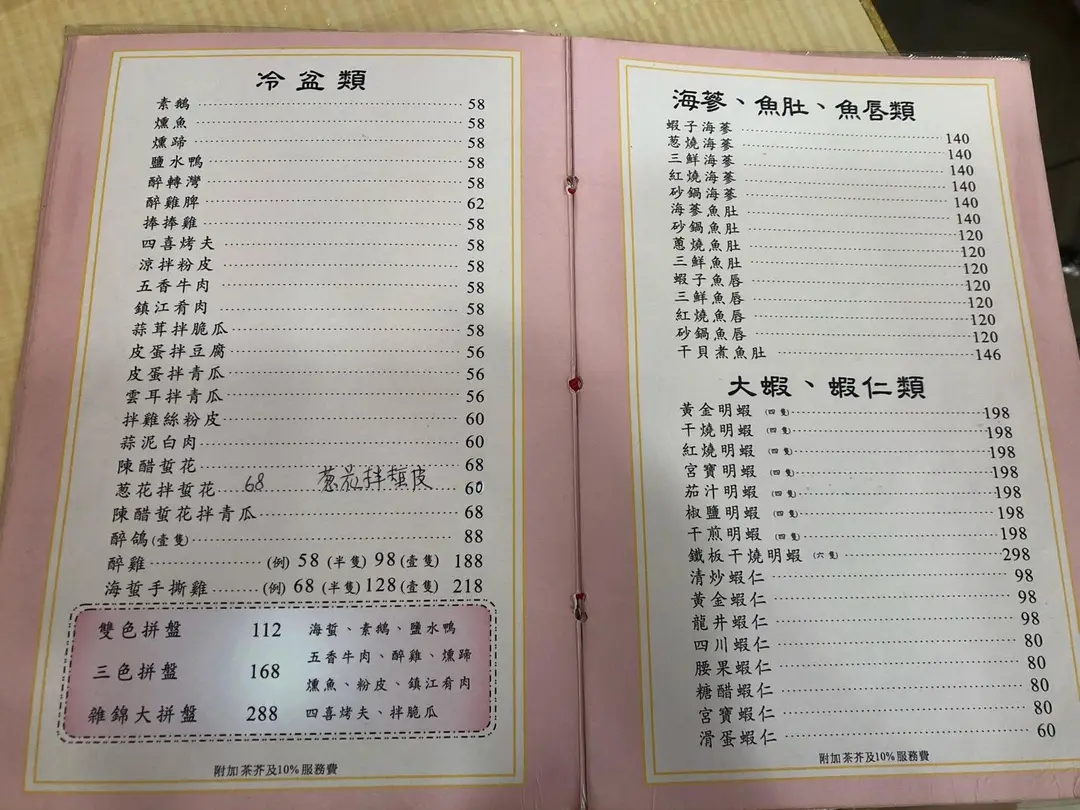 冷盆類
素鵝 58
燻魚 58
燻蹄 58
鹽水鴨 58
醉轉灣 58
醉雞脾 62
捧捧雞 58
四喜烤夫 58
涼拌粉皮 58
五香牛肉 58
鎮江肴肉 58
蒜茸拌脆瓜 58
皮蛋拌豆腐 56
皮蛋拌青瓜 56
雲耳拌青瓜 56
拌雞絲粉皮 60
蒜泥白肉 60
陳醋蜇花 68
葱花拌蜇花 68 葱花拌粉皮 60
陳醋蜇花拌青瓜 68
醉鴿(壹隻) 88
醉雞 (例) 58 (半隻) 98 (壹隻) 188
海蜇手撕雞 (例) 68 (半隻) 128 (壹隻) 218
雙色拼盤 112 海蜇、素鵝、鹽水鴨
三色拼盤 168 五香牛肉、醉雞、燻蹄
燻魚、粉皮、鎮江肴肉
雜錦大拼盤 288 四喜烤夫、拌脆瓜
附加茶芥及10%服務費
海蔘、魚肚、魚唇類
蝦子海蔘 140
葱燒海蔘 140
三鮮海蔘 140
紅燒海蔘 140
砂鍋海蔘 140
海蔘魚肚 140
砂鍋魚肚 120
蔥燒魚肚 120
三鮮魚肚 120
蝦子魚唇 120
三鮮魚唇 120
紅燒魚唇 120
砂鍋魚唇 120
干貝煮魚肚 146
大蝦、蝦仁類
黃金明蝦 (四隻) 198
干燒明蝦 (四隻) 198
紅燒明蝦 (四隻) 198
宮寶明蝦 (四隻) 198
茄汁明蝦 (四隻) 198
椒鹽明蝦 (四隻) 198
干煎明蝦 (四隻) 198
鐵板干燒明蝦 (六隻) 298
清炒蝦仁 98
黃金蝦仁 98
龍井蝦仁 98
四川蝦仁 80
腰果蝦仁 80
糖醋蝦仁 80
宮寶蝦仁 80
滑蛋蝦仁 60
附加茶芥及10%服務費